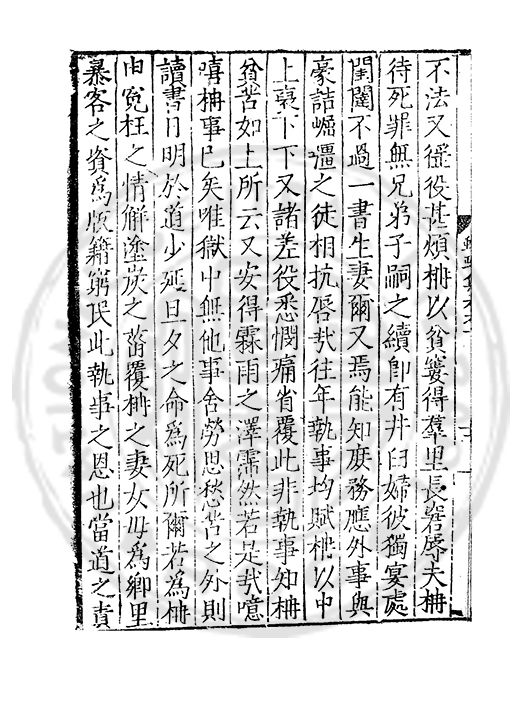 不法又徭役甚煩枏以貧窶得羣里長窘辱夫枏
待死罪無兄弟子嗣之續即有井臼婦彼獨宴處
閨闥不過一書生妻爾又焉能知庶務應外事與
豪詰崛彊之徒相抗唇㦲往年執事均賦枏以中
上裒下下又諸差役悉憫痛省覆此非執事知枏
貧苦如上所云又安得霖雨之澤霈然若是㦲噫
嘻枏事已矣唯獄中無他事舍勞思愁苦之外則
讀書日明於道少延旦夕之命爲死所爾若爲枏
由寃枉之情解塗炭之菑覆枏之妻女毋爲鄉里
暴客之資爲版籍窮民此執事之恩也當道之責